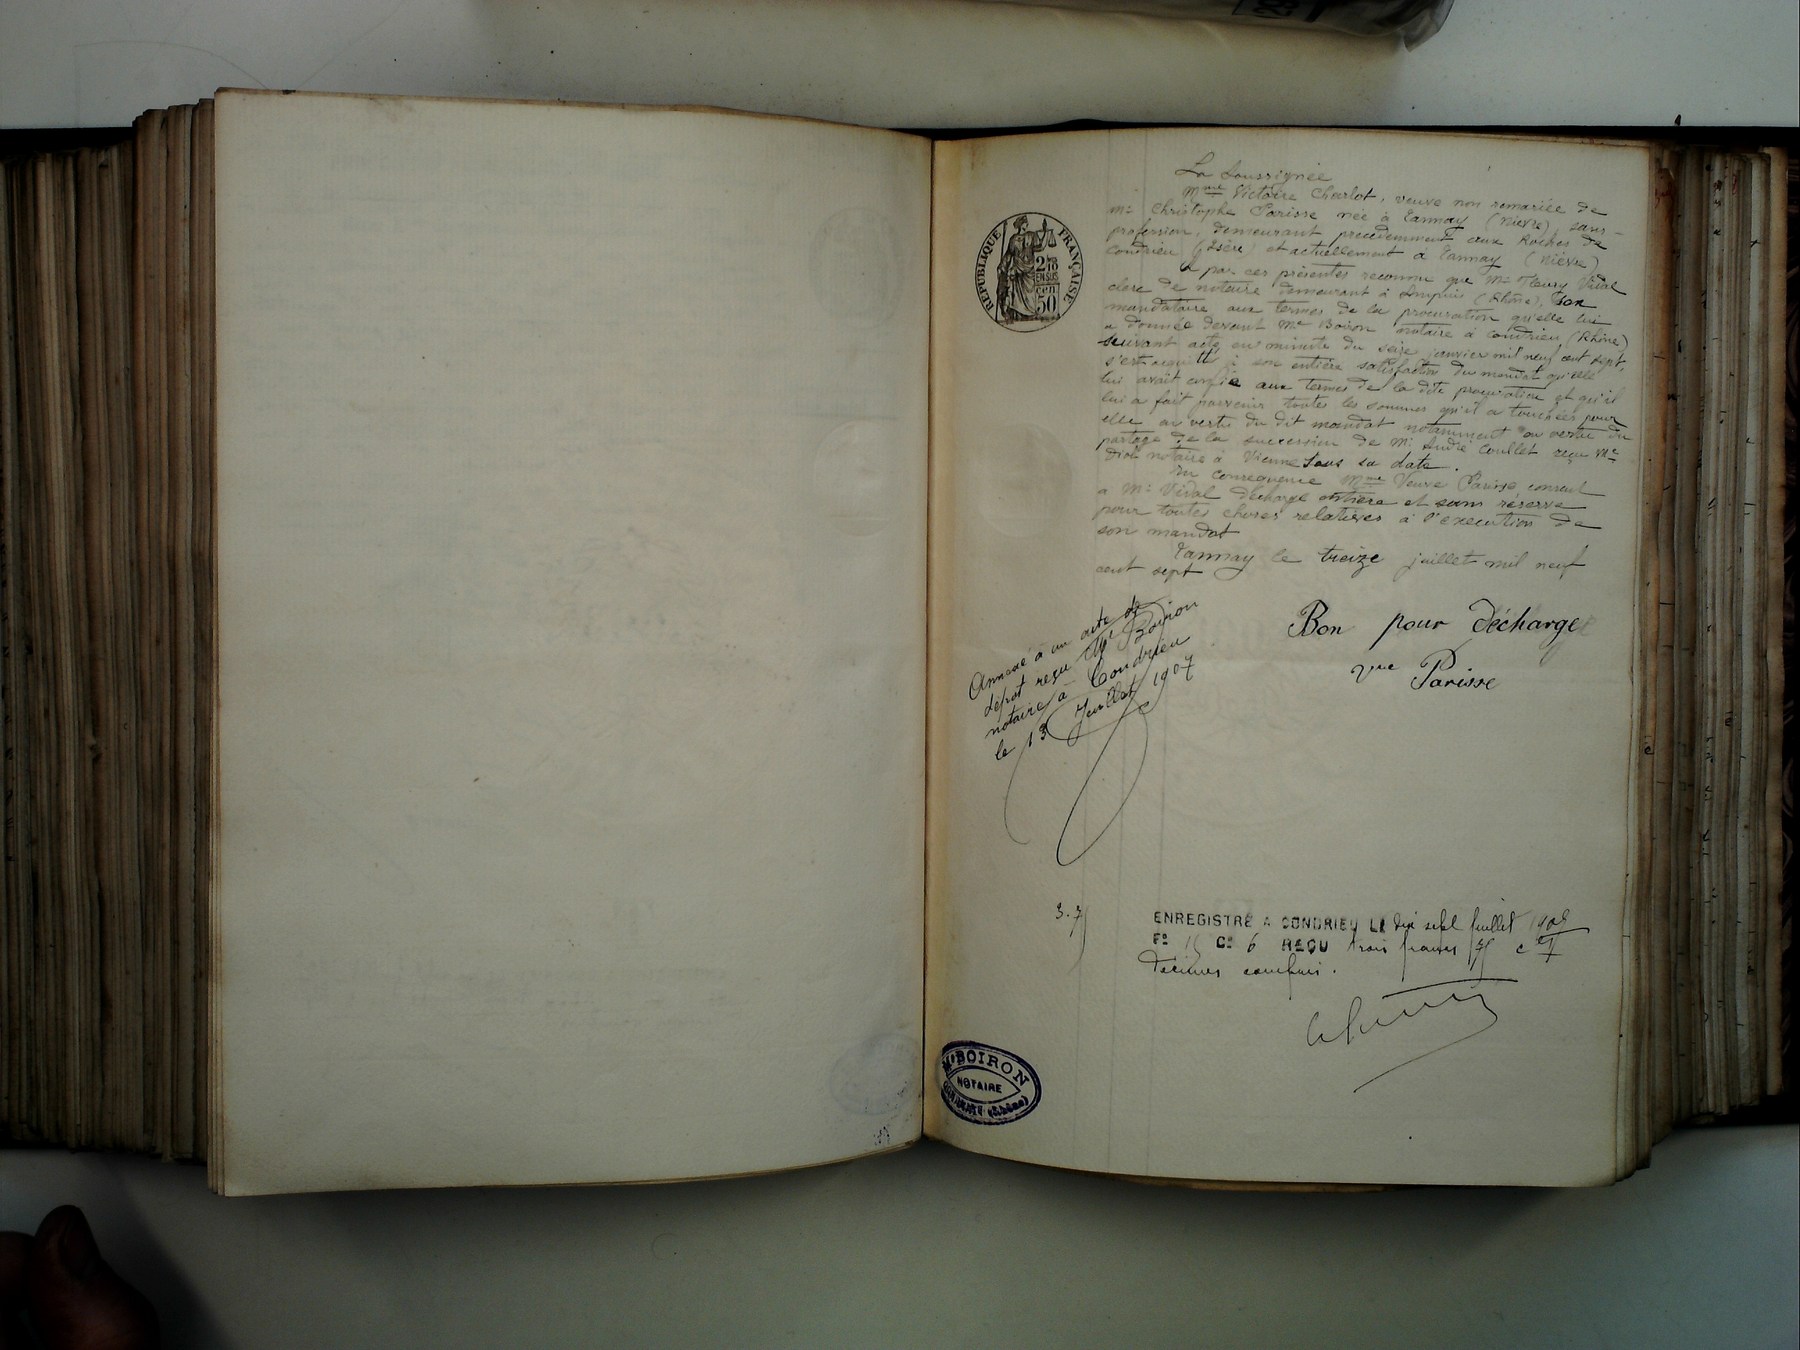 La Soussignée
Mme Victoire Charlot, veuve non remariée de
Mr Christophe Parisse née à Tannay (Nièvre) sans
profession, demeurant précédemment aux Roches de
Condrieu (Isère) et actuellement à Tannay (Nièvre)
A par ces présentes reconnu que Mr Fleury Vidal
clerc de notaire demeurant à Ampuis (Rhône), son
mandataire aux termes de la procuration qu'elle lui
a donnée devant Me Boiron notaire à Condrieu (Rhône)
suivant acte en minute du seize janvier mil neuf cent sept,
s'est acquitté à son entière satisfaction du mandat qu'elle
lui avait confié aux termes de la dite procuration et qu'il
lui a fait parvenir toutes les sommes qu'il a touchées pour
elle en vertu du dit mandat notamment en vertu du
partage de la succession de Mr André Coullet reçu Me
Diot notaire à Vienne sous sa date.
En conséquence Mme Veuve Parisse consent
a Mr Vidal décharge entière et sans réserve
pour toutes choses relatives à l'execution de
son mandat
Tannay le treize juillet mil neuf
cent sept
Bon pour décharge
vve Parisse
Annexé à un acte de
dépot reçu Me Boiron
notaire à Condrieu
le 13 Juillet 1907
3.75
ENREGISTRÉ A CONDRIEU LE dix sept Juillet
Fo 15 Co 6 REÇU trois francs 75 c
décimes compris.
RÉPUBLIQUE FRANÇAISE
2/10
EN SUS
50 cen
Me BOIRON
NOTAIRE
CONDRIEU (Rhône)